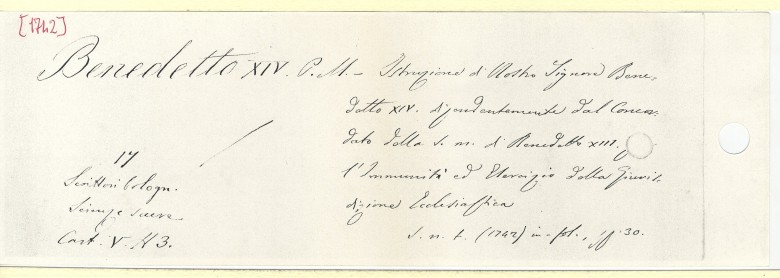 [1742]
Benedetto XIV. P. M. – Istruzione di Nostro Signore Bene,
detto XIV. dipendentemente dal Concor,
dato della s. m. di Benedetto XIII.
l'Immunità ed Esercizio della Giuris,
dizione Ecclesiastica
s. n. t. (1742) in-fol., pp. 30.
17
Scrittori bologn.
Scienze sacre
Cart. V. N 3.